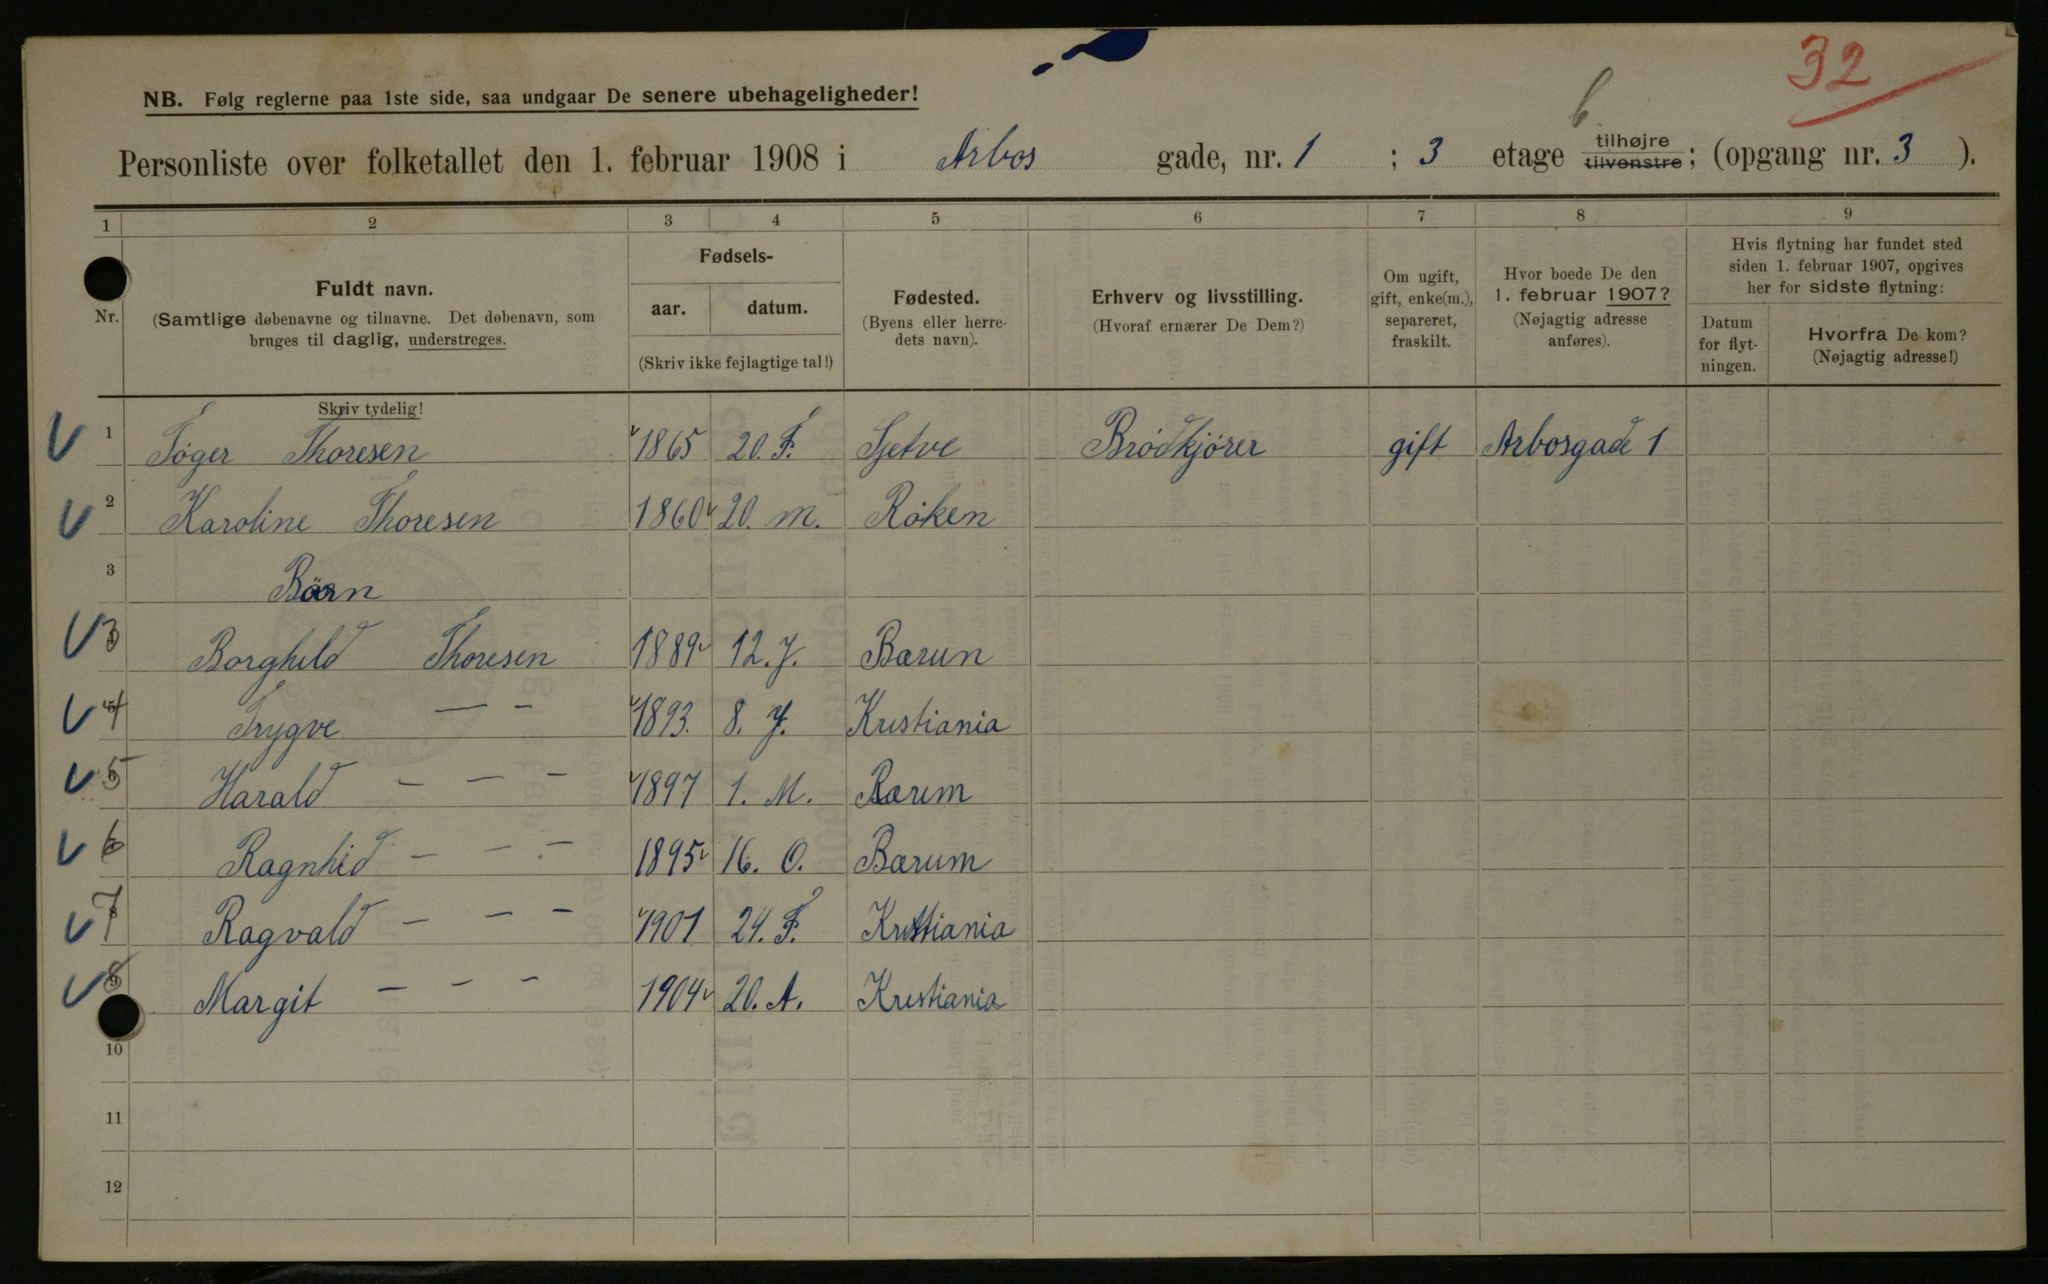 32
NB. Følg reglerne paa 1ste side, saa undgaar De senere ubehageligheder!
b
Personliste over folketallet den 1. februar 1908 i Arbos gade, nr. 1 ; 3 etage tilhøjre tilvenstre; (opgang nr. 3 ).
1 2 3 4 5 6 7 8 9
Nr.
Fuldt navn.
(Samtlige døbenavne og tilnavne. Det døbenavn, som
bruges til daglig, understreges.
Fødsels-
aar. datum.
(Skriv ikke fejlagtige tal!)
Fødested.
(Byens eller herre-
dets navn).
Erhverv og livsstilling.
(Hvoraf ernærer De Dem?)
Om ugift,
gift, enke(m.),
separeret,
fraskilt.
Hvor boede De den
1. februar 1907?
(Nøjagtig adresse
anføres).
Hvis flytning har fundet sted
siden 1. februar 1907, opgives
her for sidste flytning:
Datum
for flyt-
ningen.
Hvorfra De kom?
(Nøjagtig adresse!)
Skriv tydelig!
1 Tøger Thoresen 1865 20. F. Tjetve Brødkjører gift Arbosgade 1
2 Karoline Thoresen 1860 20. m. Røken
3 Børn
3 Borghild Thoresen 1889 12. J. Bærun
4 Trygve — - 1893. 8. J. Kristiania
5 Harald - - - 1897 1. M. Bærum
6 Ragnhid - - - 1895 16. O. Bærum
7 Ragvald - - - 1901 24. F. Kristiania
8 Margit - - - 1904 20. A. Kristiania
10
11
12